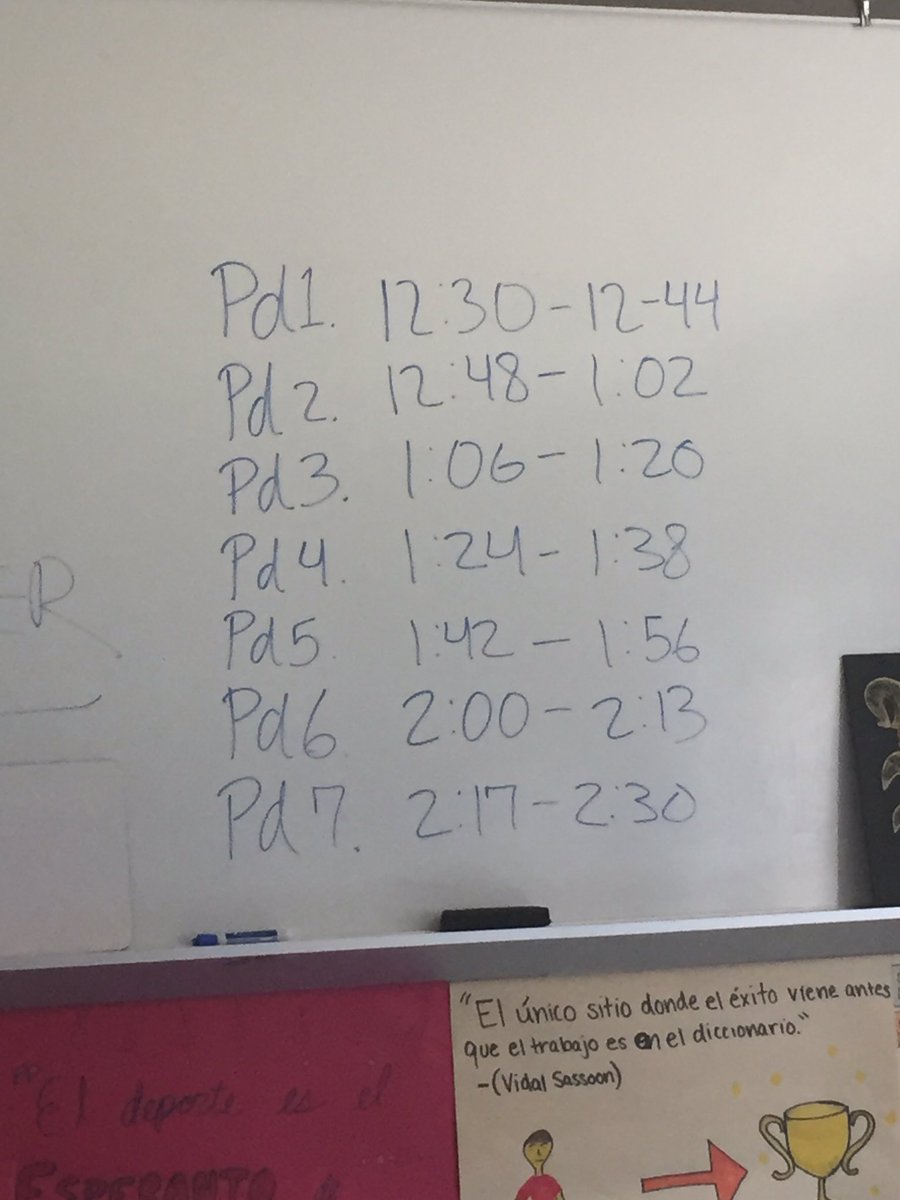 Pd1. 12:30-12-44
Pd2. 12:48-1:02
Pd3. 1:06-1:20
Pd4. 1:24-1:38
Pd5 1:42-1:56
Pd6 2:00-2:13
Pd7. 2:17-2:30
"El único sitio donde el éxito viene antes
que el trabajo es en el diccionario."
-(Vidal Sassoon)
"El deporte es el
ESPERANTO